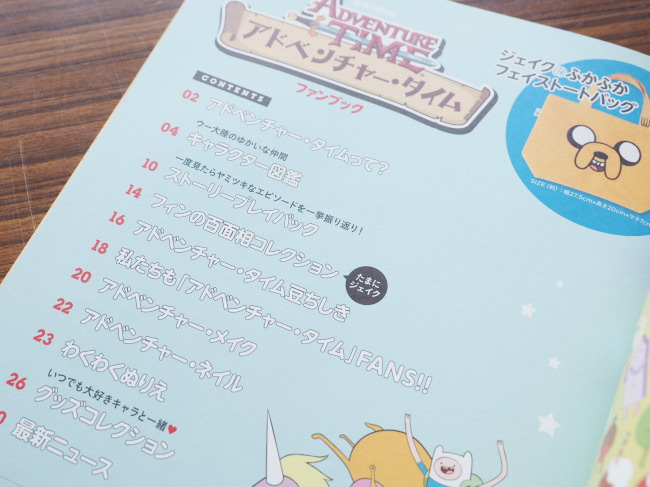 ADVENTURE
TIME
アドベンチャー・タイム
ファンブック
ジェイクのふかふか
フェイストートバッグ
CONTENTS
02 アドベンチャー・タイムって?
ウー大陸のゆかいな仲間
04 キャラクター図鑑
一度見たらヤミツキなエピソードを一挙振り返り!
10 ストーリープレイバック
14 フィンの百面相コレクション
たまに
ジェイク
16 アドベンチャー・タイム豆ちしき
18 私たちも「アドベンチャー・タイム」FANS!!
20 アドベンチャー・メイク
22 アドベンチャー・ネイル
23 わくわくぬりえ
いつでも大好きキャラと一緒♥
26 グッズコレクション
0 最新ニュース
SIZE(約):幅27.5cm×高さ20cm×マチ7cm